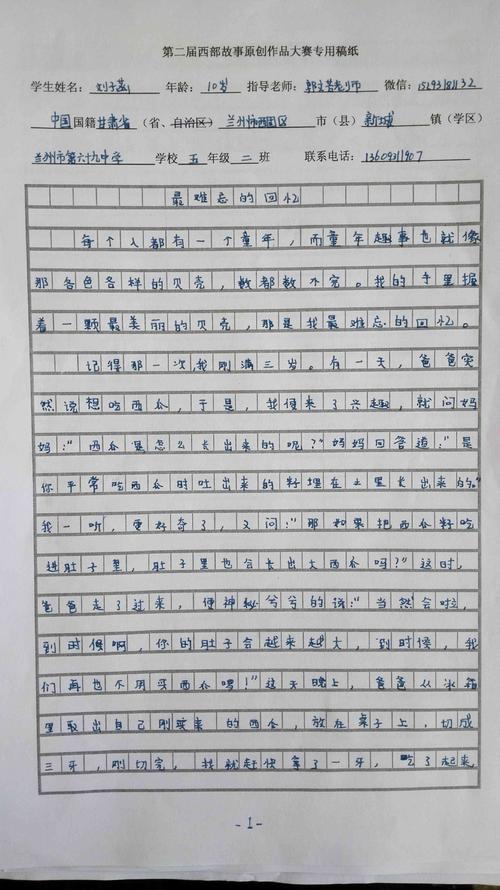 第二届西部故事原创作品大赛专用稿纸
学生姓名：刘子菡 年龄：10岁 指导老师：老师 微信：
中国国籍甘肃省（省、自治区）兰州市西固区市（县）新城镇（学区）
兰州市第六十九中学学校五年级二班 联系电话：13609311907
最难忘的回忆
每个人都有一个童年，而童年趣事也就像
那各色各样的贝壳，数都数不完。我的手里握
着一颗最美丽的贝壳，那是我最难忘的回忆。
记得那一次，我刚满三岁。有一天，爸爸突
然说想吃西瓜，于是，我便来了兴趣，就问妈
妈：“西瓜是怎么长出来的呢？”妈妈回答道：“是
你平常吃西瓜时吐出来的籽埋在土里长出来的。”
我一听，更好奇了，又问：“那如果把西瓜籽吃
进肚子里，肚子里也会长出大西瓜吗？”这时，
爸爸走了过来，便神秘兮兮的说：“当然会啦，
到时候啊，你的肚子会越来越大，到时候，我
们再也不用买西瓜啰！”这天晚上，爸爸从冰箱
里取出自己刚买来的西瓜，放在桌子上，切成
三牙，刚切完，我就赶快拿了一牙，吃了起来，
-1-